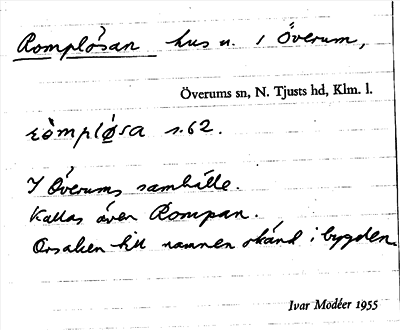 Romplösan hus n. i Överum,
Överums sn, N. Tjusts hd, Klm. l.
ròmpløsa s. 62.
I Överums samhälle.
Kallas även Rompan.
Orsaken till namnen okänd i bygden.
Ivar Modéer 1955